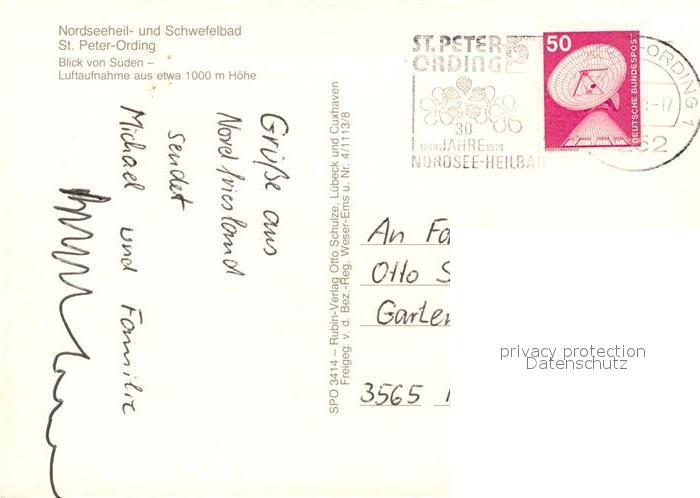 Nordseeheil- und Schwefelbad
St. Peter-Ording
Blick von Süden –
Luftaufnahme aus etwa 1000 m Höhe
Grüße aus
Nordfriesland
sendet
Michael und Familie
SPO 3414 – Rubin-Verlag Otto Schulze, Lübeck und Cuxhaven
Freigeg. v. d. Bez.-Reg. Weser-Ems u. Nr. 4/1113/8
ST. PETER
ORDING
30
1949 JAHRE 1979
NORDSEE-HEILBAD
50
DEUTSCHE BUNDESPOST
-ORDING 1
-17
252
An Fa
Otto S
Garten
3565
privacy protection
Datenschutz